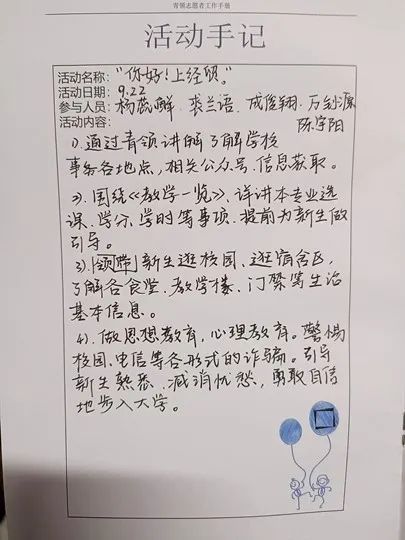 青领志愿者工作手册
活动手记
活动名称：“你好！上经贸。”
活动日期：9.22
参与人员：杨蕊鲜. 裘兰语. 成俊翔. 万钞源
陈宇阳
活动内容：
1). 通过青领讲解了解学校
事务各地点，相关公众号.信息获取。
2). 围绕《教学一览》、详讲本专业选
课、学分、学时等事项.提前为新生做
引导。
3) 领带新生逛校园、逛宿舍区,
了解各食堂、教学楼、门禁等生活
基本信息。
4). 做思想教育，心理教育。警惕
校园、电信等各形式的诈骗。引导
新生熟悉、减消忧愁，勇敢自信
地步入大学。